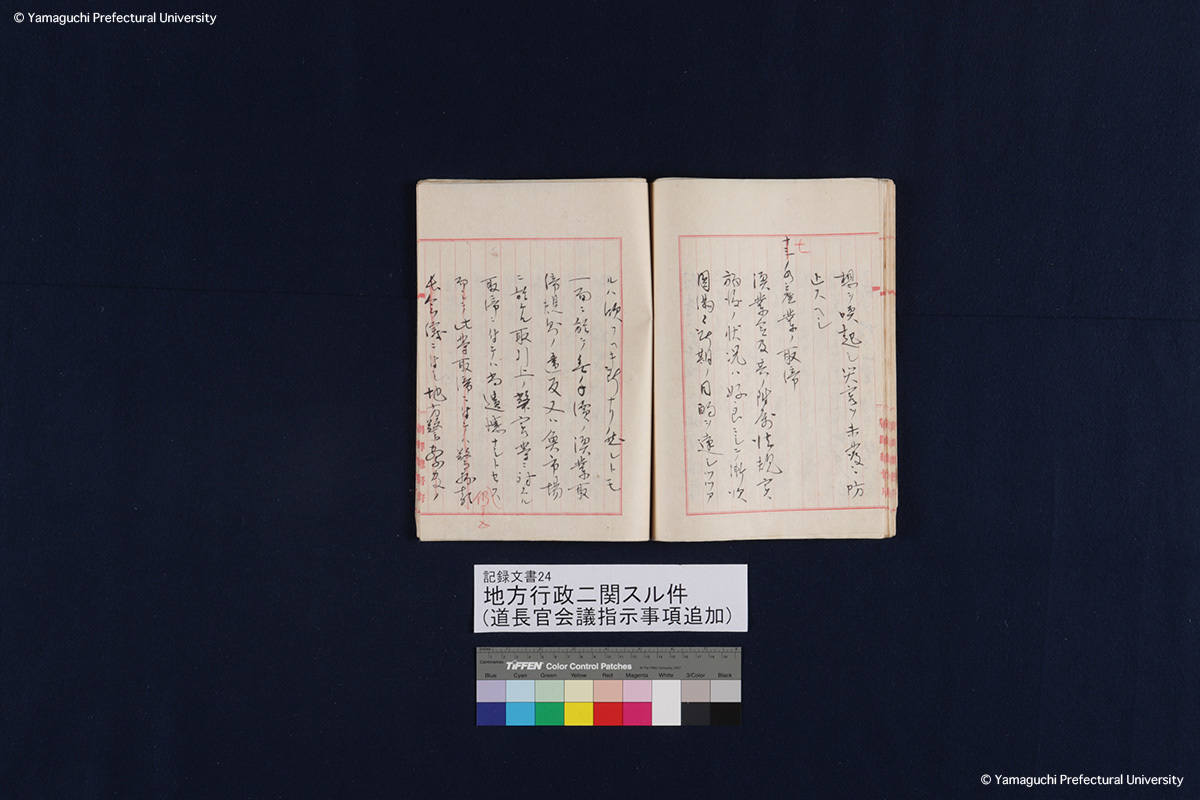 © Yamaguchi Prefectural University
想ヲ喚起シ災害ヲ未發ニ防
止スヘシ
七
水産業ノ取締
漁業令及其ノ附屬法規実
施後ノ状況ハ好良ニシテ漸次
圓満ニ所期ノ目的ヲ達シツツア
ルハ欣フヘキ所ナリ然レトモ
一面ニ於テ無手續ノ漁業取
締規則ノ違反又ハ魚市場
ニ於ケル取引上ノ弊害等ニ対スル
取締ニ付テハ尚遺憾ナシトセス
此等取締ニ付テハ警務部
長会議ニ付シ地方警察官ノ
記録文書24
地方行政ニ関スル件
(道長官会議指示事項追加)
Centimetres
TIFFEN Color Control Patches
Blue Cyan Green Yellow Red Magenta White 3/Color Black
© Yamaguchi Prefectural University